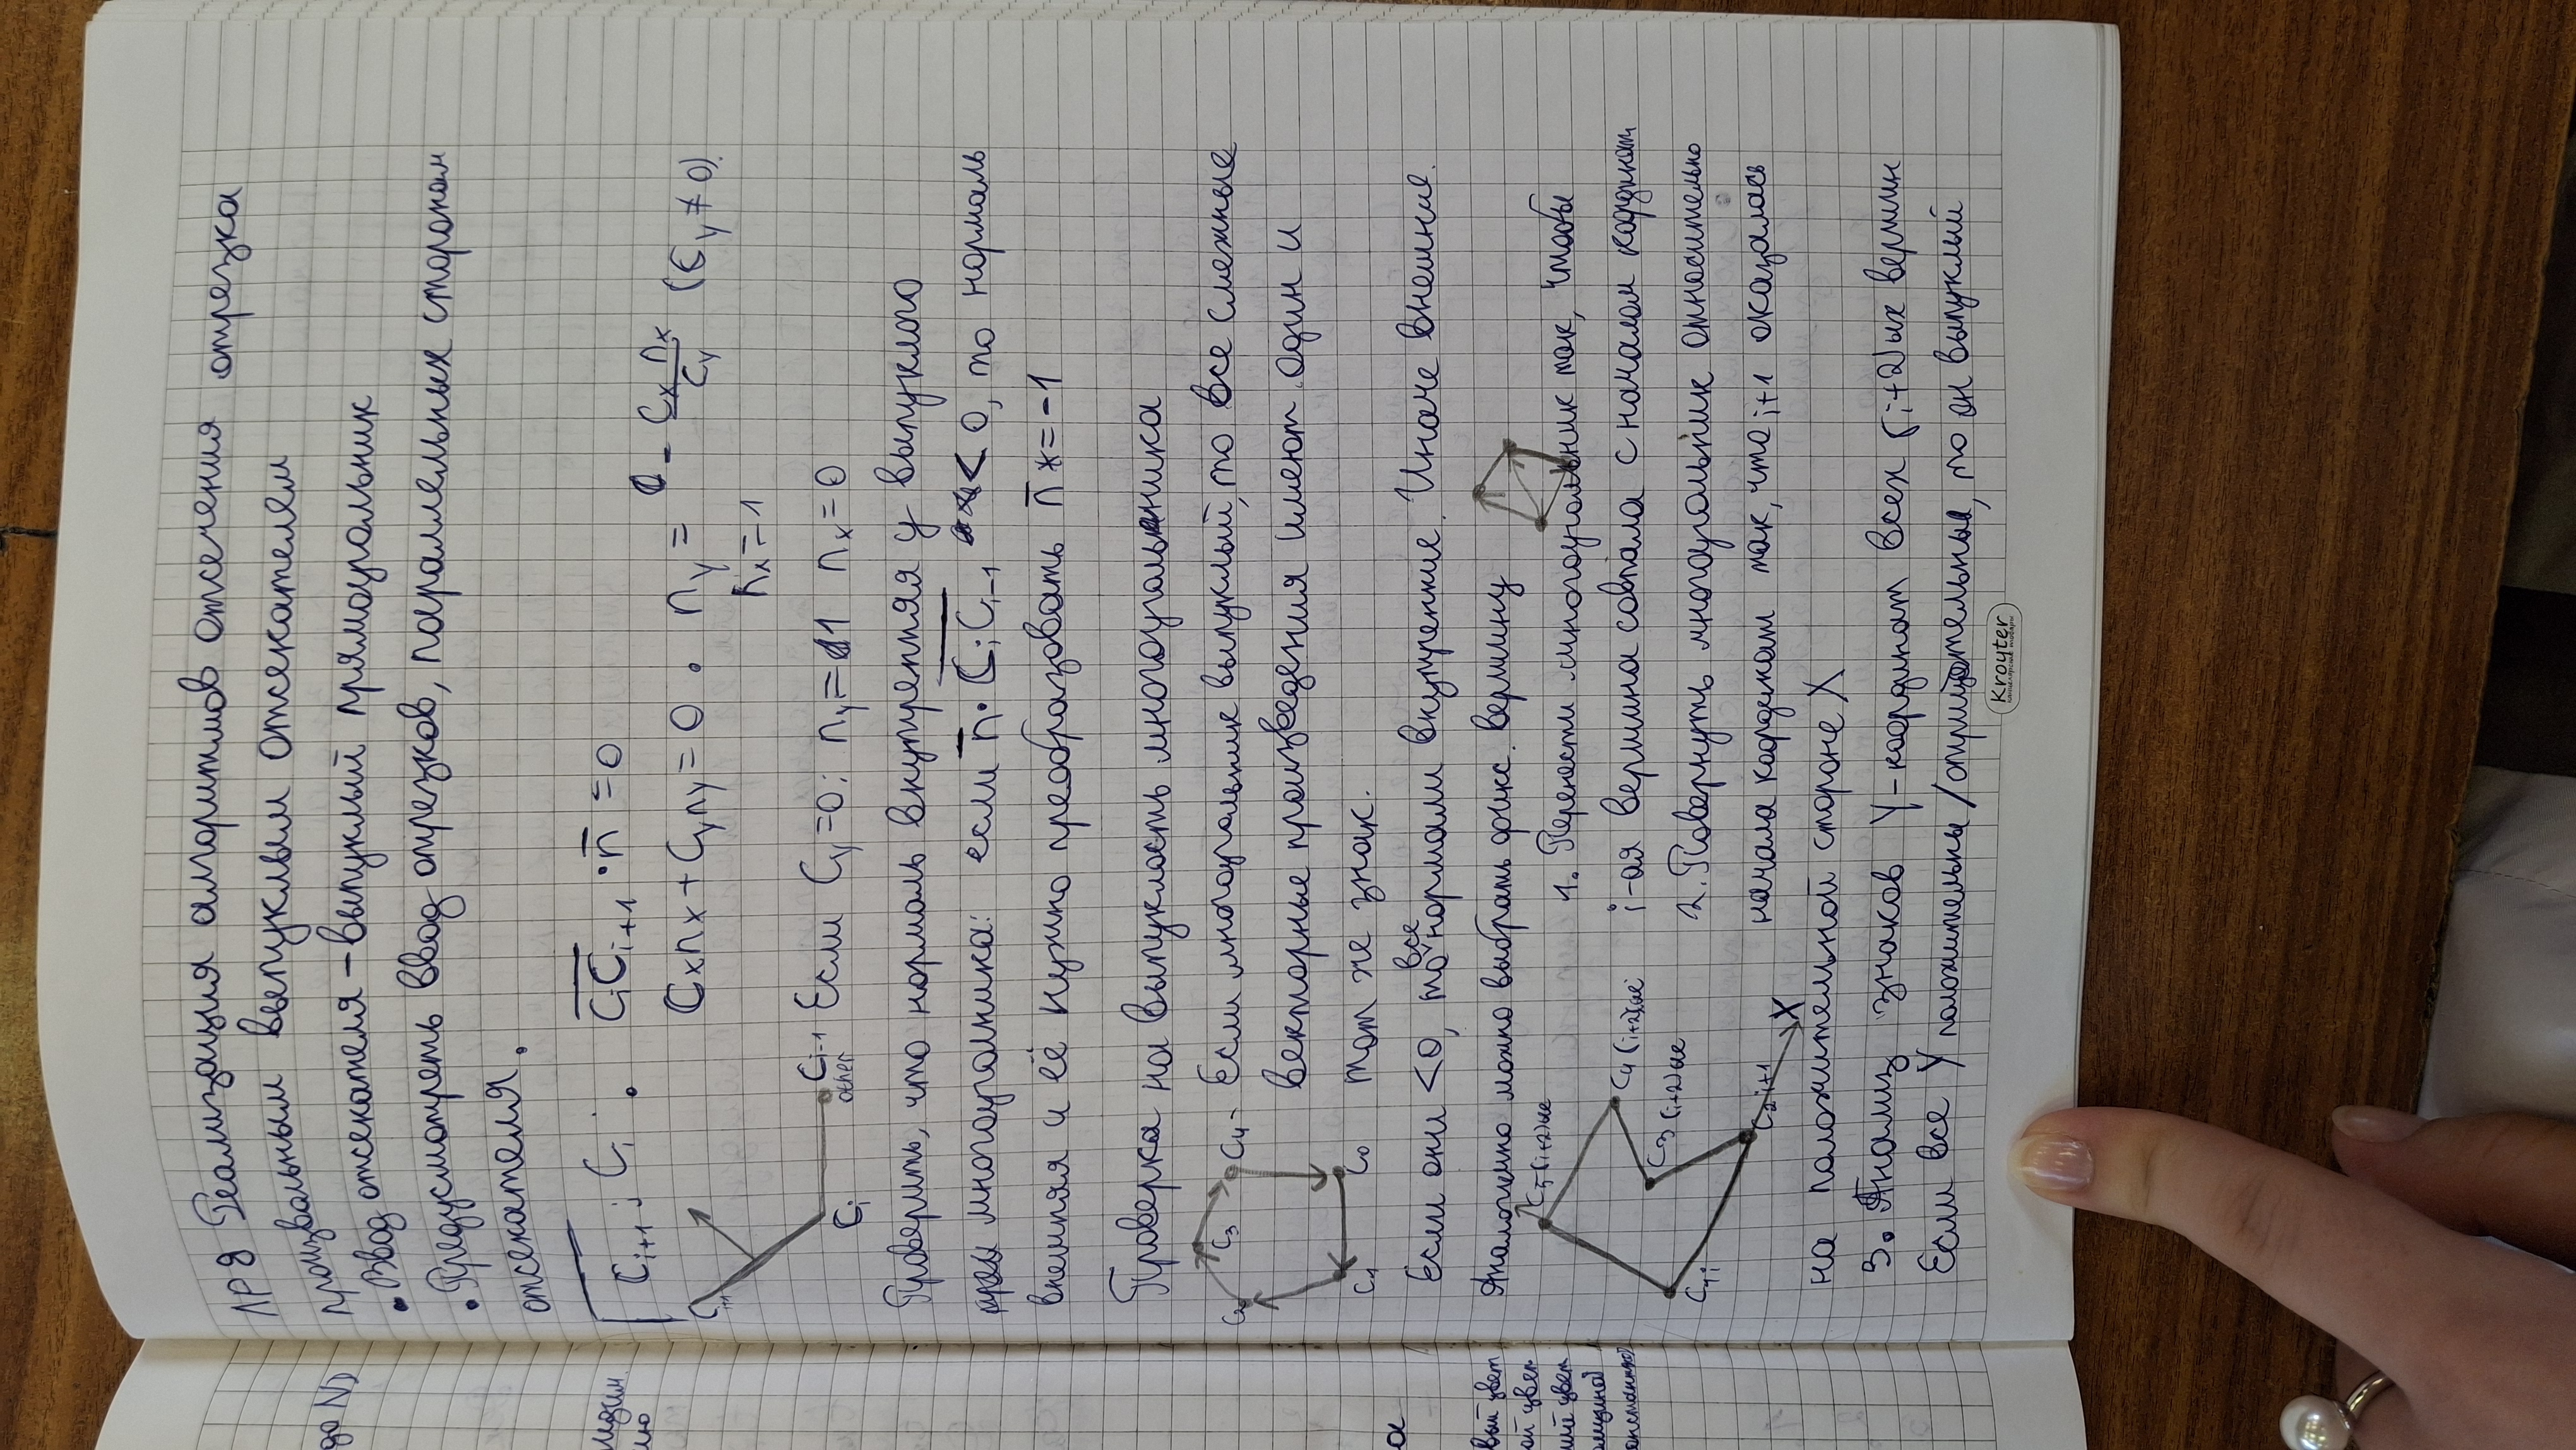 до N)
ЛР 8 Реализация алгоритмов отсечения отрезка
произвольным выпуклым отсекателем
• Ввод отсекателя – выпуклый прямоугольник
• Предусмотреть ввод отрезков, параллельных сторонам
отсекателя.
C_{i+1}; C_i : C_iC_{i+1} · n̄ = 0
C_x n_x + C_y n_y = 0. n_y = - C_x n_x / C_y (C_y ≠ 0).
n_x = 1
C_{i+1}
C_i
C_{i-1}
other
Если C_y = 0: n_y = 1 n_x = 0
Проверить, что нормаль внутренняя у выпуклого
многоуголника: если n̄ · C_iC_{i-1} < 0, то нормаль
внешняя и её нужно преобразовать n̄ *= -1
Проверка на выпуклость многоугольника
C2 C3 C4 - Если многоугольник выпуклый, то все смежные
векторные произведения имеют один и
C1 C0 тот же знак.
Если они < 0, то все нормали внутренние. Иначе внешние.
Аналогично можно выбрать фикс. вершину
C5 (i+2)ые
1. Перенести многоугольник так, чтобы
C4 (i+2)ые
i-ая вершина совпала с началом координат
C3 (i+2)ые
2. Повернуть многоугольник относительно
C2 i+1
начала координат так, что i+1 оказалась
X
на положительной стороне X
3. Анализ знаков Y-координат всех (i+2)ых вершин
Если все Y положительны/отрицательные, то он выпуклый
Kroyter
канцелярские товары
а
вый цвет
ой цвет
ний цвет